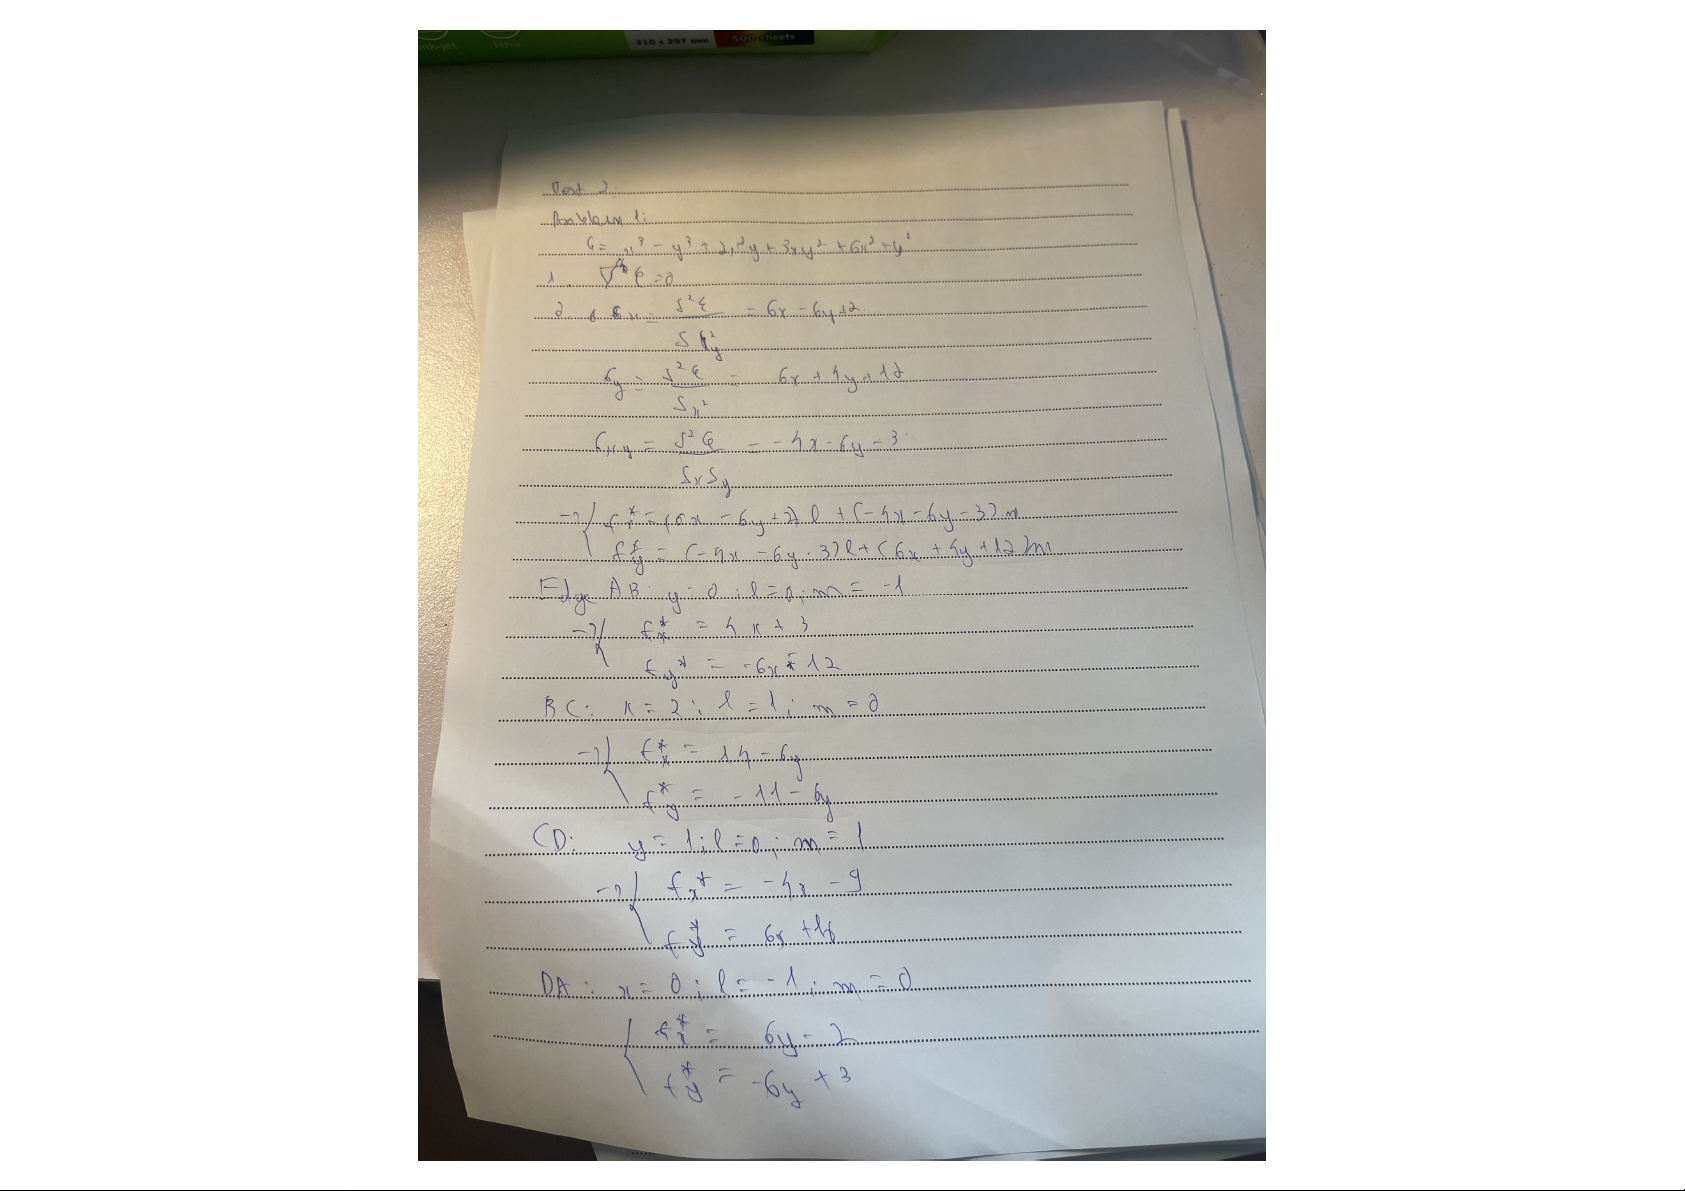 ink-jet litho 210 x 297 mm 500 sheets
Test 2.
Problem 1:
φ = x³ - y³ + 2x²y + 3xy² + 6x² + y²
1. ∇⁴φ = 0
2. σx = δ²φ / δy² = 6x - 6y + 2
σy = δ²φ / δx² = 6x + 4y + 12
σxy = δ²φ / δxδy = -4x - 6y - 3
→ { fx* = (6x - 6y + 2) l + (-4x - 6y - 3) m
fy* = (-4x - 6y - 3) l + (6x + 4y + 12) m
Edge AB: y = 0 ; l = 0 ; m = -1
→ { fx* = 4x + 3
fy* = -6x - 12
BC: x = 2 ; l = 1 ; m = 0
→ { fx* = 14 - 6y
fy* = -11 - 6y
CD: y = 1 ; l = 0 ; m = 1
→ { fx* = -4x - 9
fy* = 6x + 16
DA: x = 0 ; l = -1 ; m = 0
{ fx* = 6y - 2
fy* = -6y + 3